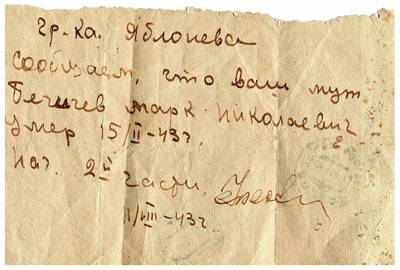 гр-ка. Яблонева
сообщаем, что ваш муж
Бечичев марк Николаевич
умер 15/II-43г.
Нач. 2й части
1/VIII-43г